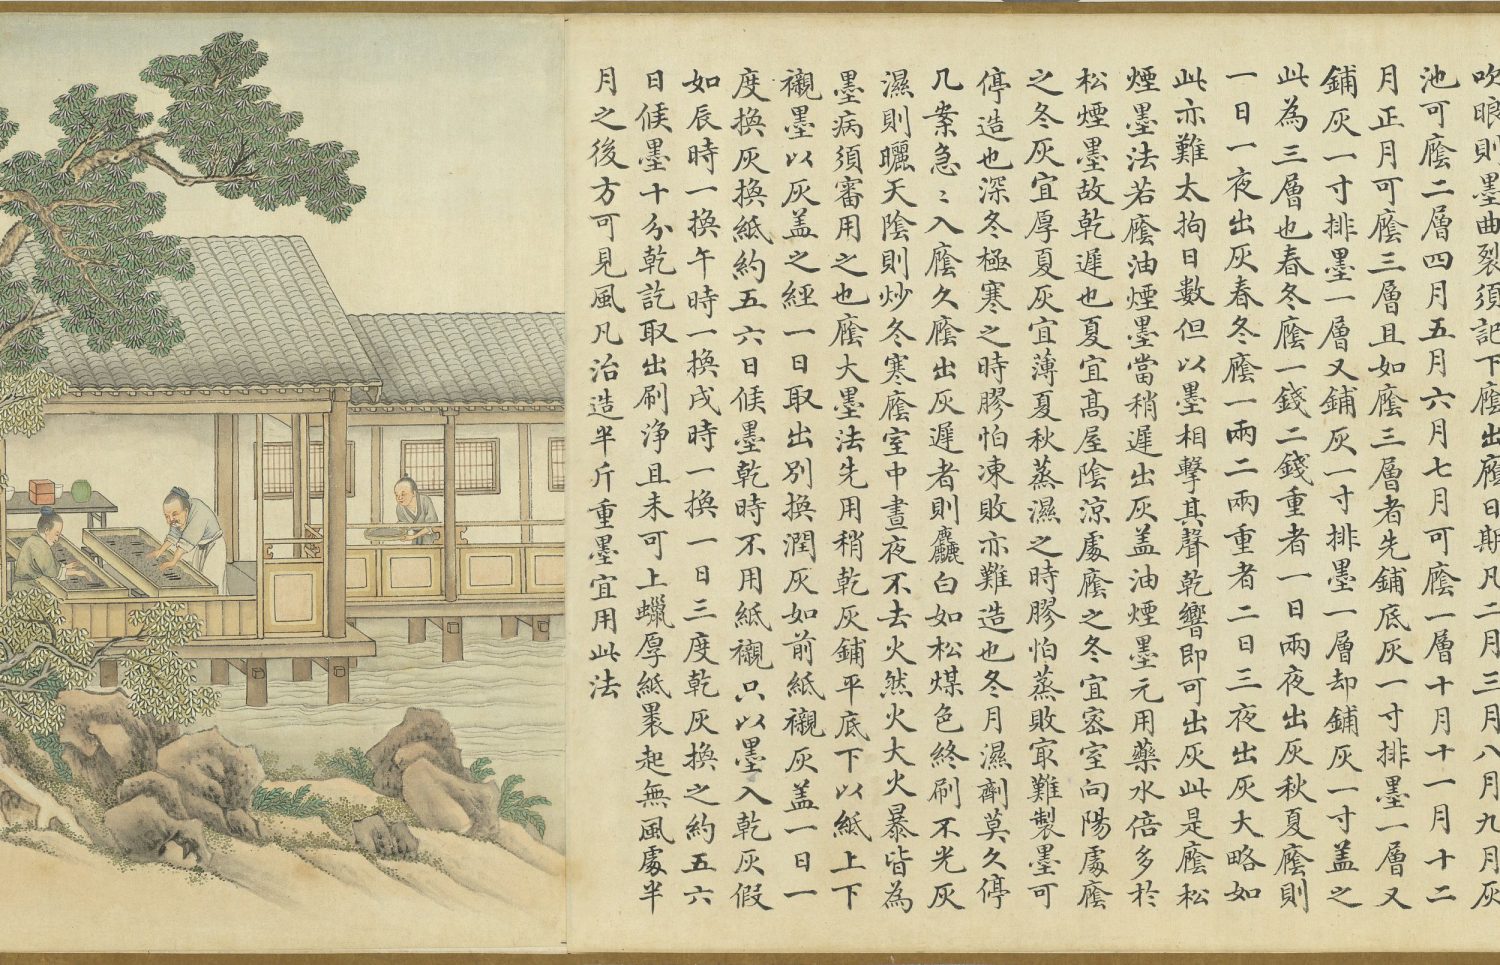 吹眼則墨曲裂須記下廕出廕日期凡二月三月八月九月灰
池可廕二層四月五月六月七月可廕一層十月十一月十二
月正月可廕三層且如廕三層者先鋪底灰一寸排墨一層又
鋪灰一寸排墨一層又鋪灰一寸排墨一層却鋪灰一寸盖之
此為三層也春冬廕一錢二錢重者一日兩夜出灰秋夏廕則
一日一夜出灰春冬廕一兩二兩重者二日三夜出灰大略如
此亦難太拘日數但以墨相擊其聲乾響即可出灰此是廕松
煙墨法若廕油煙墨當稍遲出灰盖油煙墨元用藥水倍多於
松煙墨故乾遲也夏宜高屋陰涼處廕之冬宜密室向陽處廕
之冬灰宜厚夏灰宜薄夏秋蒸濕之時膠怕蒸敗㝡難製墨可
停造也深冬極寒之時膠怕凍敗亦難造也冬月濕劑莫久停
几案急〻入廕久廕出灰遲者則麤白如松煤色終刷不光灰
濕則曬天陰則炒冬寒廕室中晝夜不去火然火大火暴皆為
墨病須審用之也廕大墨法先用稍乾灰鋪平底下以紙上下
襯墨以灰盖之經一日取出別換潤灰如前紙襯灰盖一日一
度換灰換紙約五六日候墨乾時不用紙襯只以墨入乾灰假
如辰時一換午時一換戌時一換一日三度乾灰換之約五六
日候墨十分乾訖取出刷淨且未可上蠟厚紙裹起無風處半
月之後方可見風凡治造半斤重墨宜用此法